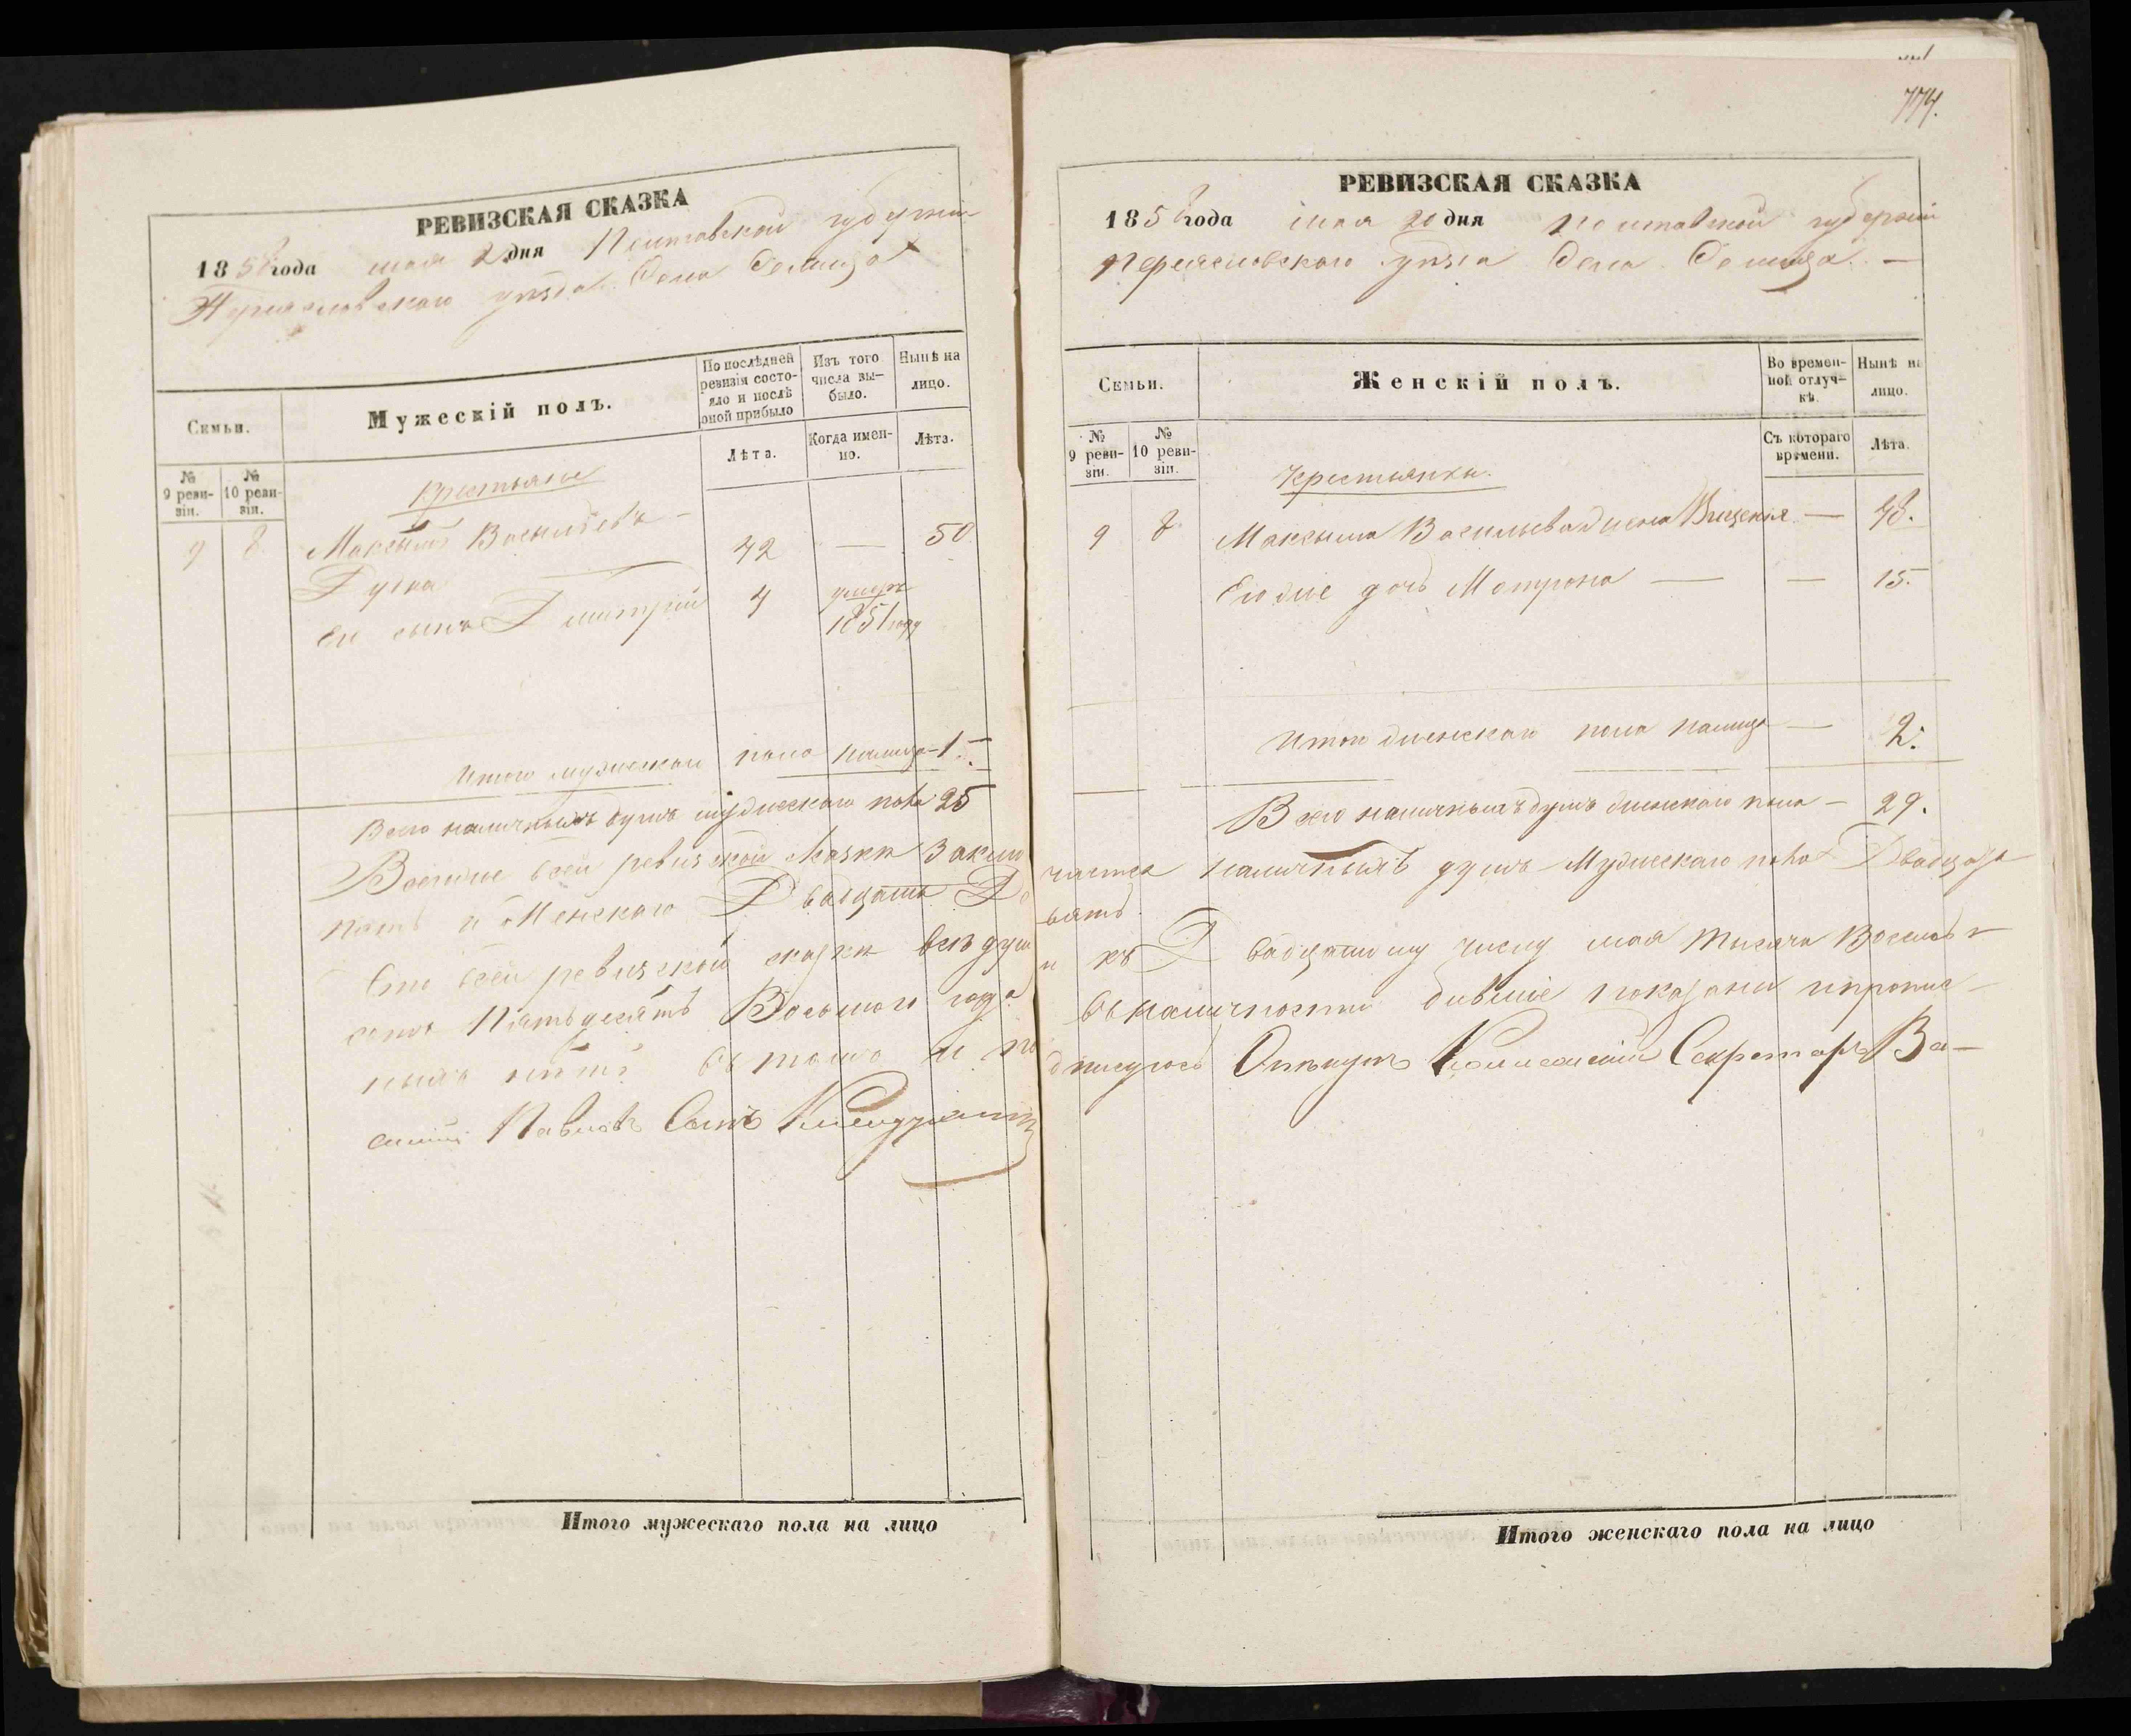 РЕВИЗСКАЯ СКАЗКА
1858 года мая 20 дня Полтавской губерніи
Переяславскаго уѣзда Села
Семьи.
Мужескій полъ.
По послѣдней ревизіи состояло и послѣ оной прибыло
Изъ того числа выбыло.
Нынѣ на лицо.
№ 9 ревизіи.
№ 10 ревизіи.
Лѣта.
Когда именно.
Лѣта.
Крестьяне
9 8 Максымъ Васильевъ 42 — 50
Дудка
Его сынъ Дмитрій 4 умеръ 1851 году
Итого мужескаго пола налицо — 1.
Всего наличныхъ душъ мужескаго пола 25
774.
РЕВИЗСКАЯ СКАЗКА
1858 года мая 20 дня Полтавской губерніи
Переяславскаго уѣзда Села
Семьи.
Женскій полъ.
Во временной отлучкѣ.
Нынѣ на лицо.
№ 9 ревизіи.
№ 10 ревизіи.
Съ котораго времени.
Лѣта.
Крестьянки.
9 8 Максыма Васильева жена — 48.
Его же дочь Мотрона — — 15.
Итого женскаго пола налицо — 2.
Всего наличныхъ душъ женскаго пола — 29.
всей ревизской сказки заключается наличныхъ душъ Мужескаго пола Двадцать
пять и Женскаго Двадцать Девять.
всей ревизской сказки всѣ души къ Двадцатому числу мая тысяча Восемь
сотъ Пятьдесятъ Восьмаго года въ наличности бывшіе показаны и
нѣтъ въ томъ и подписуюсь Секретарь Ва-
силій Павловъ Сынъ
Итого мужескаго пола на лицо
Итого женскаго пола на лицо